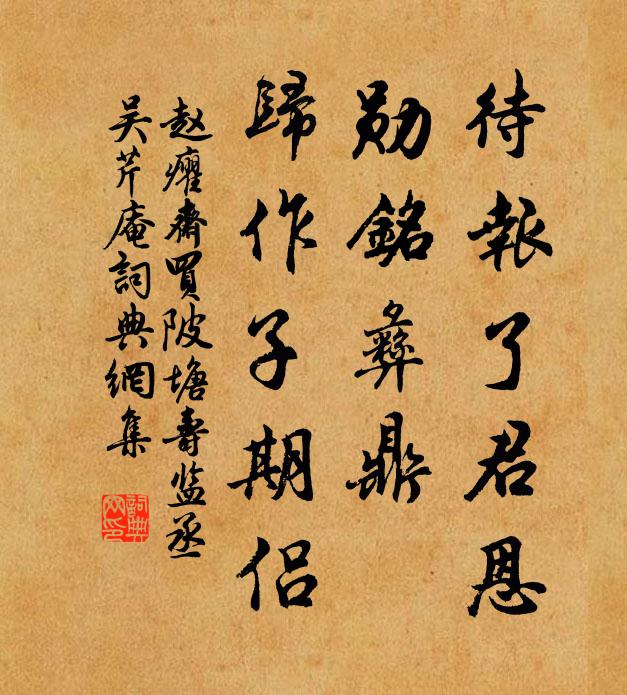 待報了君恩
勛銘彝鼎
歸作子期侶
赵癯齋買陂塘壽监丞
吴芹庵詞典網集
詞典網印